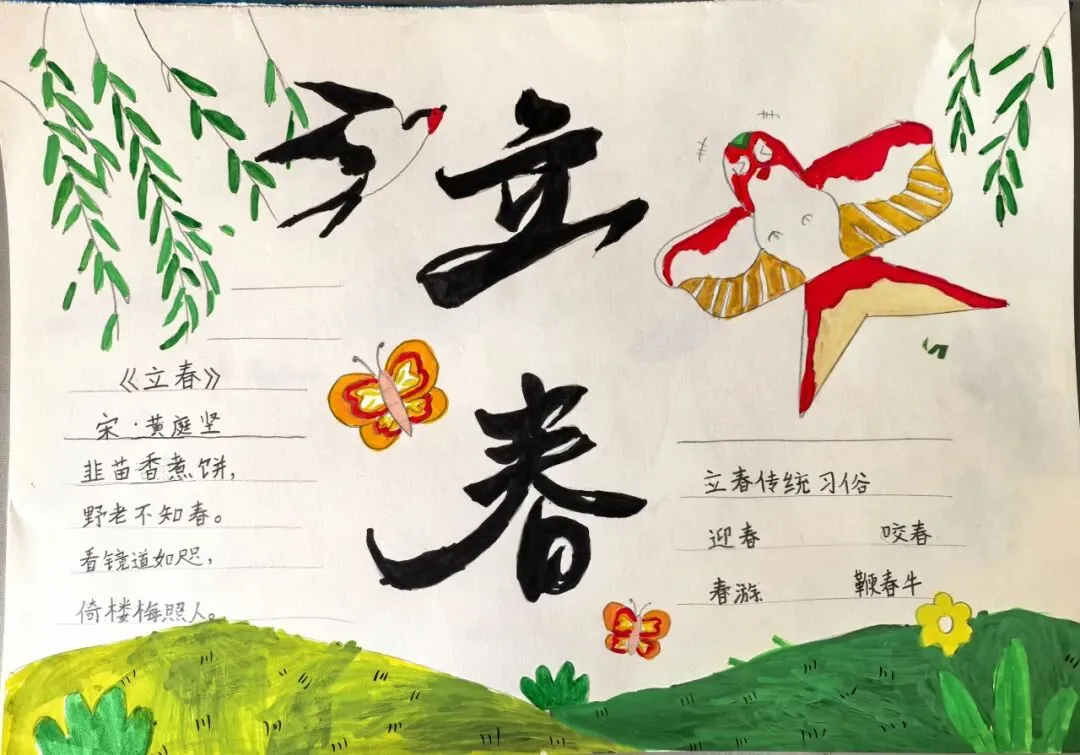 立春
《立春》
宋·黄庭坚
韭苗香煮饼，
野老不知春。
看镜道如咫，
倚楼梅照人。
立春传统习俗
迎春 咬春
春游 鞭春牛